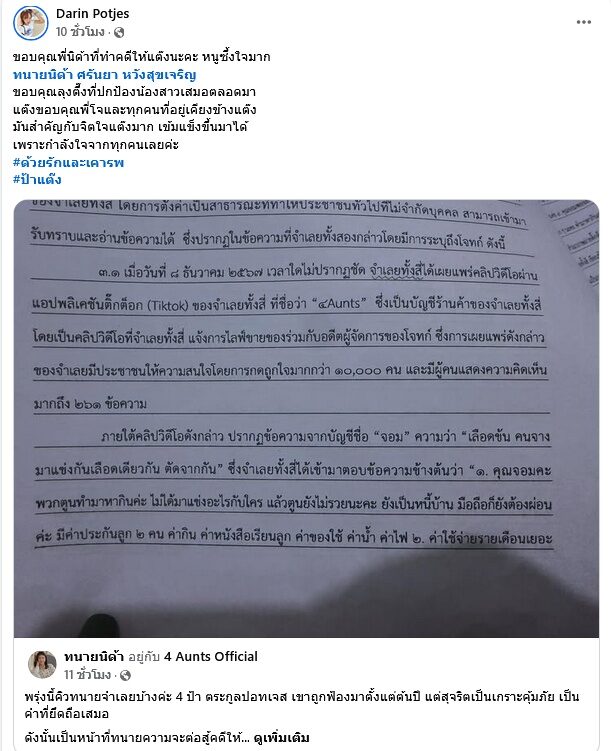 Darin Potjes
10 ชั่วโมง
ขอบคุณพี่นิด้าที่ทำคดีให้แต๊งนะคะ หนูซึ้งใจมาก
ทนายนิด้า ศรันยา หวังสุขเจริญ
ขอบคุณลุงตึ๋งที่ปกป้องน้องสาวเสมอตลอดมา
แต๊งขอบคุณพี่โจและทุกคนที่อยู่เคียงข้างแต๊ง
มันสำคัญกับจิตใจแต๊งมาก เข้มแข็งขึ้นมาได้
เพราะกำลังใจจากทุกคนเลยค่ะ
#ด้วยรักและเคารพ
#ป้าแต๊ง
ของจำเลยทั้งสี่ โดยการตั้งค่าเป็นสาธารณะที่ทำให้ประชาชนทั่วไปที่ไม่จำกัดบุคคล สามารถเข้ามา
รับทราบและอ่านข้อความได้ ซึ่งปรากฏในข้อความที่จำเลยทั้งสองกล่าวโดยมีการระบุถึงโจทก์ ดังนี้
๓.๑ เมื่อวันที่ ๘ ธันวาคม ๒๕๖๗ เวลาใดไม่ปรากฏชัด จำเลยทั้งสี่ได้เผยแพร่คลิปวิดีโอผ่าน
แอปพลิเคชันติ๊กต็อก (Tiktok) ของจำเลยทั้งสี่ ที่ชื่อว่า “๔Aunts” ซึ่งเป็นบัญชีร้านค้าของจำเลยทั้งสี่
โดยเป็นคลิปวิดีโอที่จำเลยทั้งสี่ แจ้งการไลฟ์ขายของร่วมกับอดีตผู้จัดการของโจทก์ ซึ่งการเผยแพร่ดังกล่าว
ของจำเลยมีประชาชนให้ความสนใจโดยการกดถูกใจมากกว่า ๑๐,๐๐๐ คน และมีผู้คนแสดงความคิดเห็น
มากถึง ๒๖๑ ข้อความ
ภายใต้คลิปวิดีโอดังกล่าว ปรากฏข้อความจากบัญชีชื่อ “จอม” ความว่า “เลือดข้น คนจาง
มาแข่งกันเลือดเดียวกัน ตัดจากกัน” ซึ่งจำเลยทั้งสี่ได้เข้ามาตอบข้อความข้างต้นว่า “๑. คุณจอมคะ
พวกตูนทำมาหากินค่ะ ไม่ได้มาแข่งอะไรกับใคร แล้วตูนยังไม่รวยนะคะ ยังเป็นหนี้บ้าน มือถือก็ยังต้องผ่อน
ค่ะ มีค่าประกันลูก ๒ คน ค่ากิน ค่าหนังสือเรียนลูก ค่าของใช้ ค่าน้ำ ค่าไฟ ๒. ค่าใช้จ่ายรายเดือนเยอะ
ทนายนิด้า อยู่กับ 4 Aunts Official
11 ชั่วโมง
พรุ่งนี้คิวทนายจำเลยบ้างค่ะ 4 ป้า ตระกูลปอทเจส เขาถูกฟ้องมาตั้งแต่ต้นปี แต่สุจริตเป็นเกราะคุ้มภัย เป็น
ค่าที่ยึดถือเสมอ
ดังนั้นเป็นหน้าที่ทนายความจะต่อสู้คดีให้... ดูเพิ่มเติม